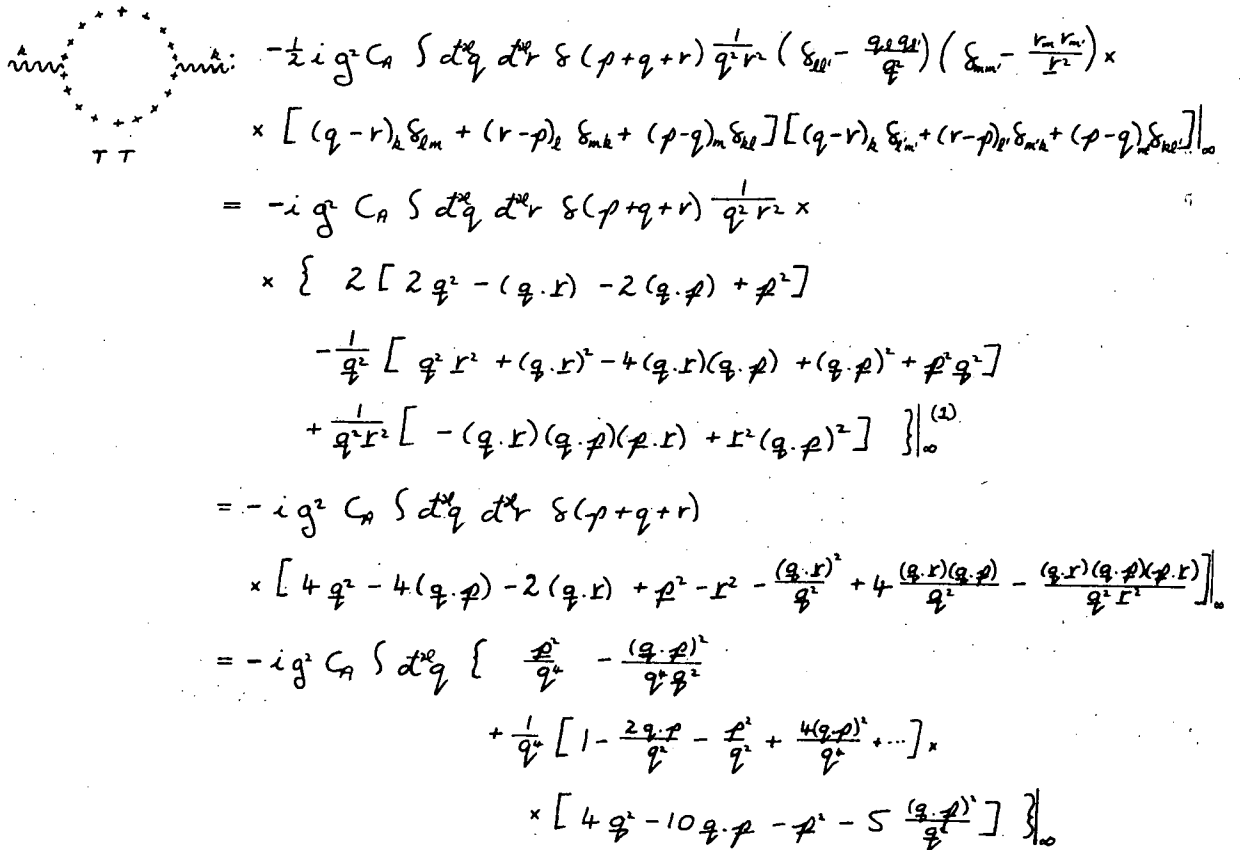 k k: -½ i g² C_A ∫ đ^ϰq đ^ϰr δ(p+q+r) 1/(q²r²) (δ_{ll'} - q_l q_{l'}/q̲²) (δ_{mm'} - r_m r_{m'}/r̲²) ×
× [(q-r)_k δ_{lm} + (r-p)_l δ_{mk} + (p-q)_m δ_{kl}] [(q-r)_k δ_{l'm'} + (r-p)_{l'} δ_{m'k} + (p-q)_{m'} δ_{kl'}]|_∞
T T
= -i g² C_A ∫ đ^ϰq đ^ϰr δ(p+q+r) 1/(q² r²) ×
× { 2 [2 q̲² - (q̲.r̲) - 2(q̲.p̲) + p̲²]
- 1/q̲² [q̲² r̲² + (q̲.r̲)² - 4(q̲.r̲)(q̲.p̲) + (q̲.p̲)² + p̲² q̲²]
+ 1/(q̲² r̲²) [-(q̲.r̲)(q̲.p̲)(p̲.r̲) + r̲²(q̲.p̲)²] }|_∞^{(1)}
= -i g² C_A ∫ đ^ϰq đ^ϰr δ(p+q+r)
× [4 q̲² - 4(q̲.p̲) - 2(q̲.r̲) + p̲² - r̲² - (q̲.r̲)²/q̲² + 4 (q̲.r̲)(q̲.p̲)/q̲² - (q̲.r̲)(q̲.p̲)(p̲.r̲)/(q̲² r̲²)]|_∞
= -i g² C_A ∫ đ^ϰq { p̲²/q⁴ - (q̲.p̲)²/(q⁴ q̲²)
+ 1/q⁴ [1 - 2q.p/q² - p²/q² + 4(q.p)²/q⁴ + ...] ×
× [4 q̲² - 10 q̲.p̲ - p̲² - 5 (q̲.p̲)²/q̲²] }|_∞